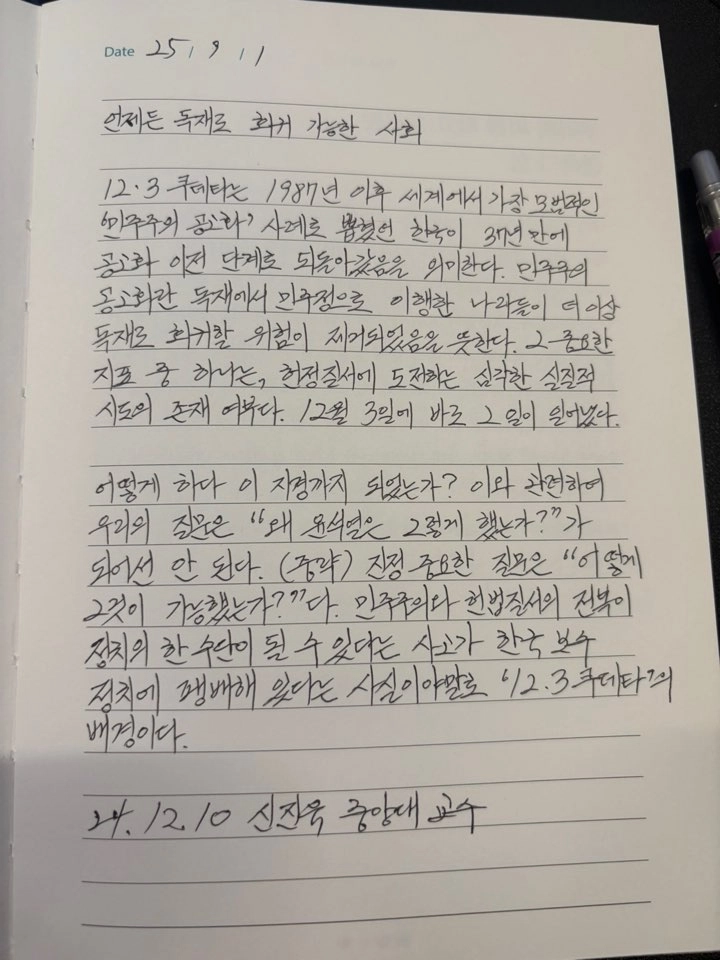 Date 25 / 9 / 1
언제든 독재로 회귀 가능한 사회
12·3 쿠데타는 1987년 이후 세계에서 가장 모범적인
'민주주의 공고화' 사례로 뽑혔던 한국이 37년 만에
공고화 이전 단계로 되돌아갔음을 의미한다. 민주주의
공고화란 독재에서 민주정으로 이행한 나라들이 더 이상
독재로 회귀할 위험이 제거되었음을 뜻한다. 그 중요한
지표 중 하나는, 헌정질서에 도전하는 심각한 실질적
시도의 존재 여부다. 12월 3일에 바로 그 일이 일어났다.
어떻게 하다 이 지경까지 되었는가? 이와 관련하여
우리의 질문은 "왜 윤석열은 그렇게 했는가?"가
되어선 안 된다. (중략) 진정 중요한 질문은 "어떻게
그것이 가능했는가?"다. 민주주의와 헌법질서의 전복이
정치의 한 수단이 될 수 있다는 사고가 한국 보수
정치에 팽배해 있다는 사실이야말로 '12.3 쿠데타'의
배경이다.
24. 12. 10 신진욱 중앙대 교수